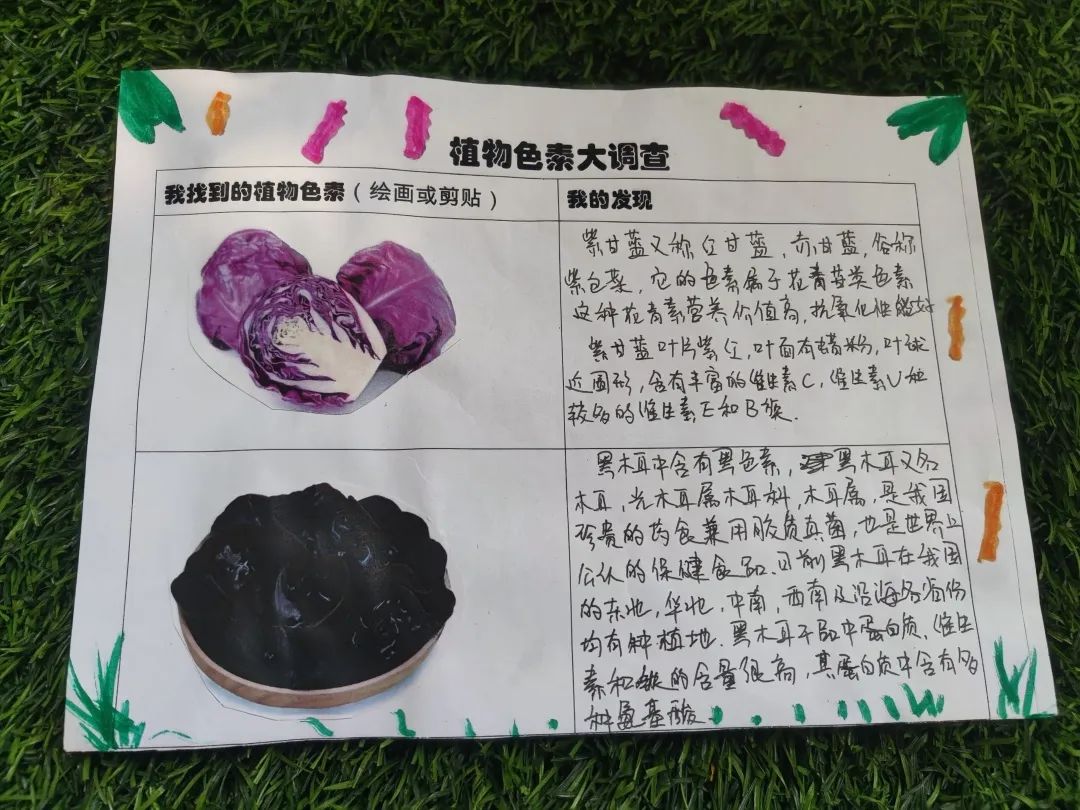 植物色素大调查
我找到的植物色素（绘画或剪贴）
我的发现
紫甘蓝又称红甘蓝，赤甘蓝，俗称
紫包菜，它的色素属于花青苷类色素
这种花青素营养价值高，抗氧化性能好
紫甘蓝叶片紫红，叶面有蜡粉，叶球
近圆形，含有丰富的维生素C，维生素U和
较多的维生素E和B族.
黑木耳中含有黑色素，黑木耳又名
木耳，光木耳属木耳科，木耳属，是我国
珍贵的药食兼用胶质真菌，也是世界上
公认的保健食品.目前黑木耳在我国
的东北，华北，中南，西南及沿海各省份
均有种植地.黑木耳干品中蛋白质、维生
素和铁的含量很高，其蛋白质中含有多
种氨基酸